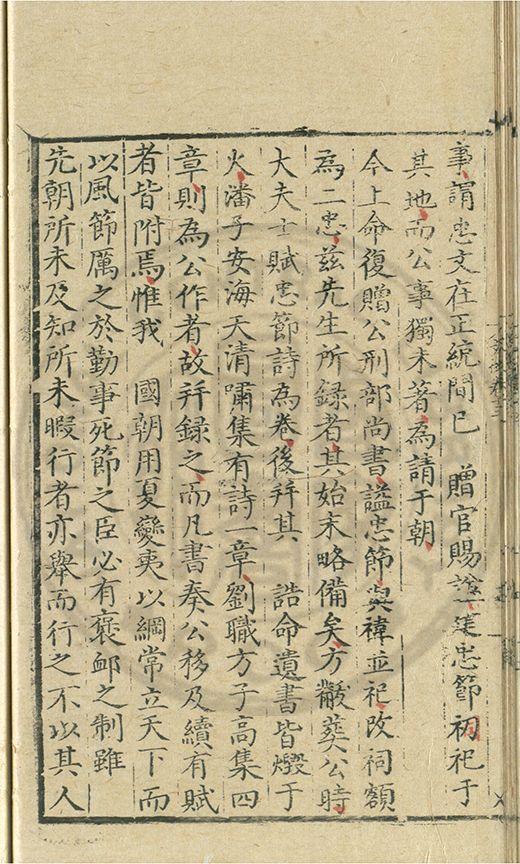 事謂忠文在正統間已　贈官賜謚建忠節祠祀于
其地而公事獨未著為請于朝
今上命復贈公刑部尚書謚忠節與褘並祀改祠額
為二忠兹先生所録者其始末略備矣方瀫葬公時
大夫士賦忠節詩為卷後并其　誥命遺書皆燬于
火潘子安海天清嘯集有詩一章劉職方子高集四
章則為公作者故并録之而凡書奏公移及續有賦
者皆附焉惟我　國朝用夏變夷以綱常立天下而
以風節厲之於勤事死節之臣必有褒卹之制雖
先朝所未及知所未暇行者亦舉而行之不以其人